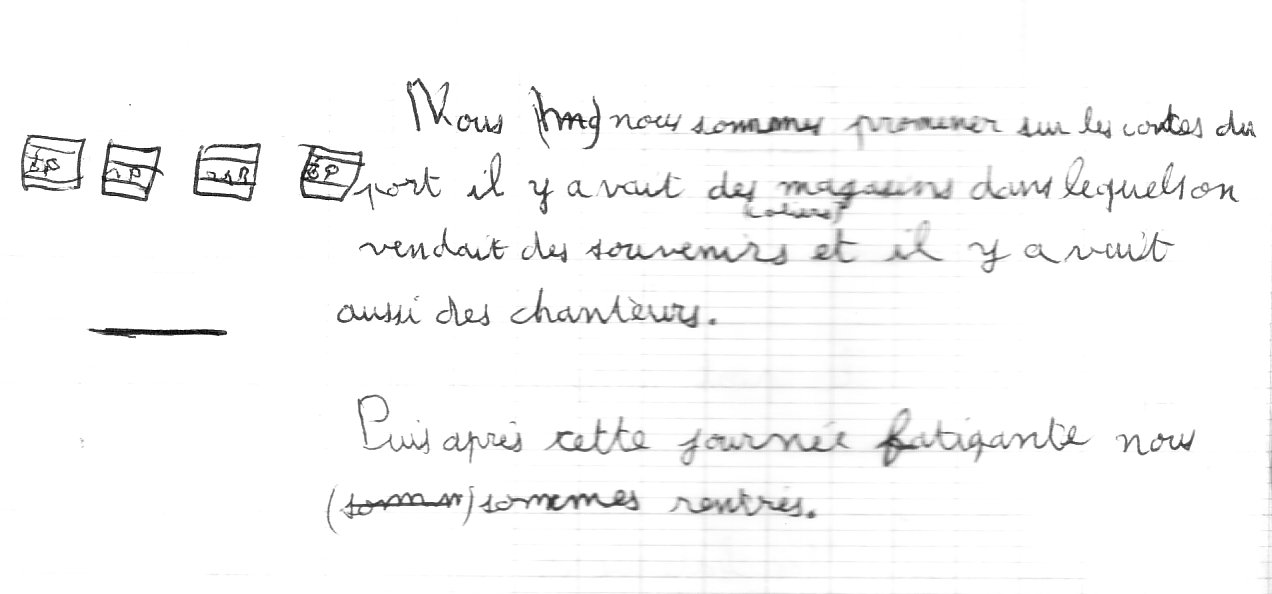 Nous nous sommes promener sur les contes du
port il y a vait des magasins dans lequels on
vendait des souvenirs et il y a vait
aussi des chanteurs.
Puis après cette journée fatigante nous
(somm) sommes rentrés.